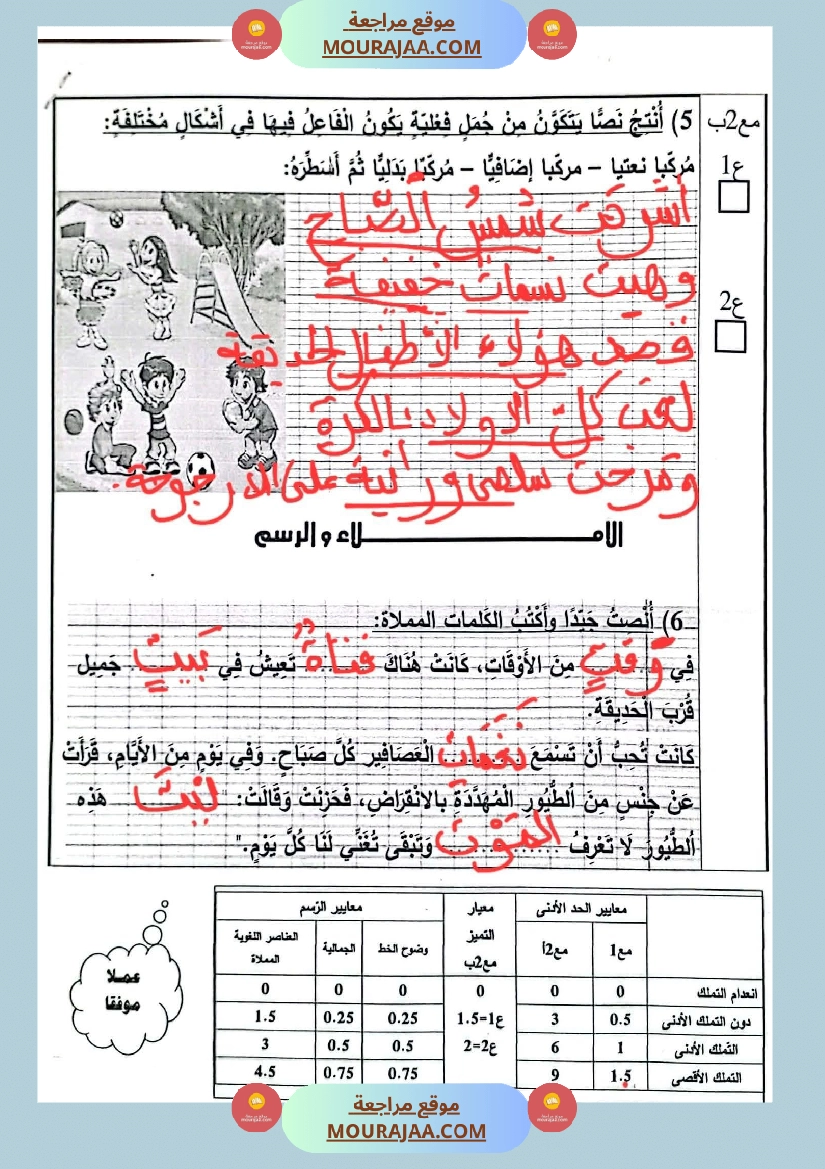 موقع مراجعة
MOURAJAA.COM
مع2ب
ع1
ع2
5) أُنْتِجُ نَصًّا يَتَكَوَّنُ مِنْ جُمَلٍ فِعْلِيّةٍ يَكُونُ الْفَاعِلُ فِيهَا فِي أَشْكَالٍ مُخْتَلِفَةٍ:
مُركّبا نعتيا – مركبا إضَافِيًّا – مُركّبًا بَدَلِيًّا ثُمَّ أُسَطِّرَهُ:
أشرقت شمسُ الصّباح
وهبت نسمات خفيفة
قصد هؤلاء الأطفال الحديقة
لعب كلّ الأولاد بالكرة
ومرحت سلمى ورانية على الأرجوحة.
الامـــلاء و الرسم
6) أُنْصِتُ جَيِّدًا وأَكْتُبُ الكَلمات المملاة:
فِي وَقتٍ مِنَ الأَوْقَاتِ، كَانَتْ هُنَاكَ فتاةٌ تَعِيشُ فِي بَيتٍ جَمِيل
قُرْبَ الْحَدِيقَةِ.
كَانَتْ تُحِبُّ أَنْ تَسْمَعَ نَغَمَات الْعَصَافِير كُلَّ صَبَاحٍ. وَفِي يَوْمٍ مِنَ الأَيَّامِ، قَرَأَتْ
عَنْ جِنْسٍ مِنَ الطُّيُورِ الْمُهَدَّدَةِ بِالانْقِرَاضِ، فَحَزِنَتْ وَقَالَتْ: "ليْتَ هَذِه
الطُّيُورَ لَا تَعْرِفُ المَوْتَ وَتَبْقَى تُغَنِّي لَنَا كُلَّ يَوْمٍ."
عملا
موفقا
معايير الحد الأدنى معيار التميز مع2ب معايير الرّسم
مع1 مع2أ وضوح الخط الجمالية العناصر اللغوية المملاة
انعدام التملك 0 0 0 0 0 0
دون التملك الأدنى 0.5 3 ع1=1.5 0.25 0.25 1.5
التملك الأدنى 1 6 ع2=2 0.5 0.5 3
التملك الأقصى 1.5 9 0.75 0.75 4.5
موقع مراجعة
MOURAJAA.COM